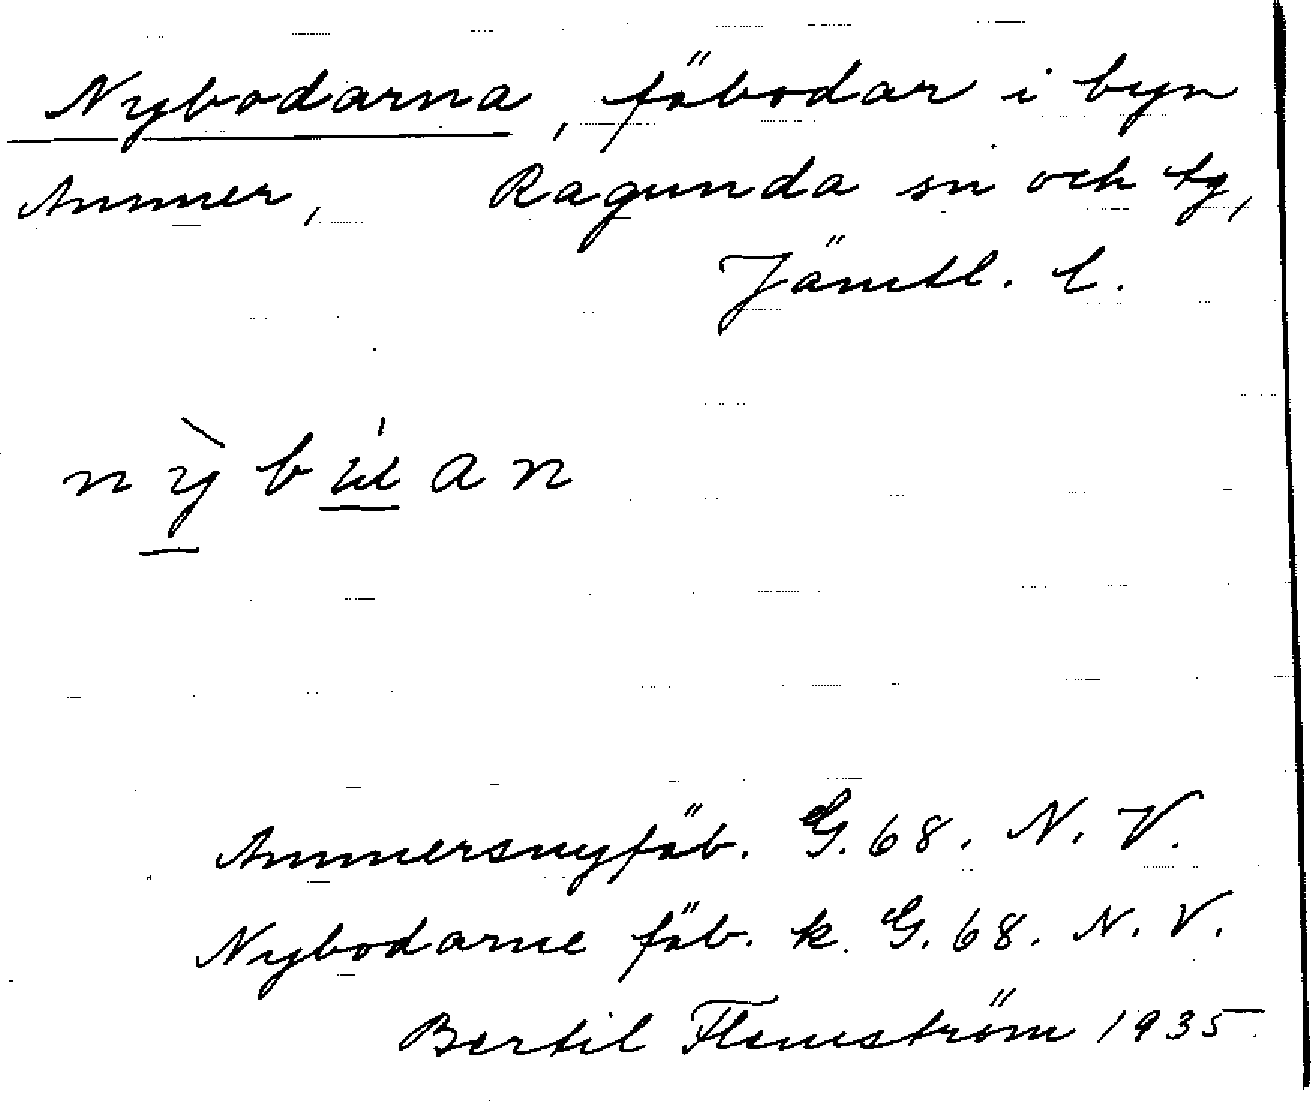 Nybodarna, föbodar i byn
Ammer, Ragunda sn och tg,
Jämtl. l.
Ammersnyföb. G. 68. N. V.
Nybodarne föb. k. G. 68. N. V.
Bertil Flemström 1935